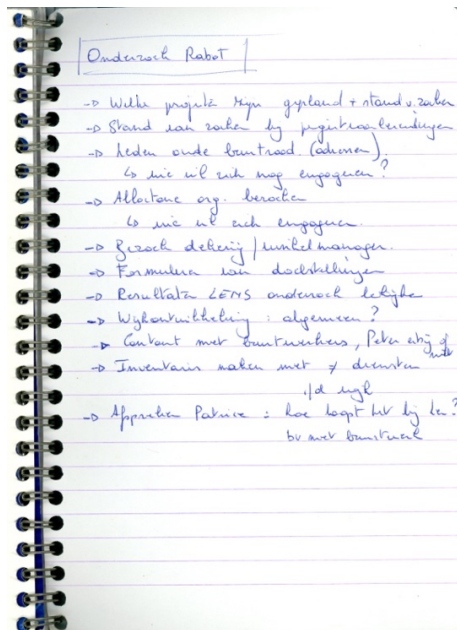 Onderzoek Rabot
-> Welke projekten zijn gepland + stand v. zaken
-> Stand van zaken bij projektvoorbereidingen
-> Leden oude buurtraad (adressen)
↳ wie wil zich nog engageren?
-> Allochtone org. bezoeken
↳ wie wil zich engageren.
-> Bezoek dekenij / winkelmanager.
-> Formuleren van doelstellingen
-> Resultaten LEMS onderzoek bekijken
-> Wijkontwikkeling : algemeen?
-> Contact met buurtwerkers, Peter erbij of niet
-> Inventaris maken met ≠ diensten
i/d wijk
-> Afspreken Patrice : hoe loopt het bij hen?
bv met buurtwerk